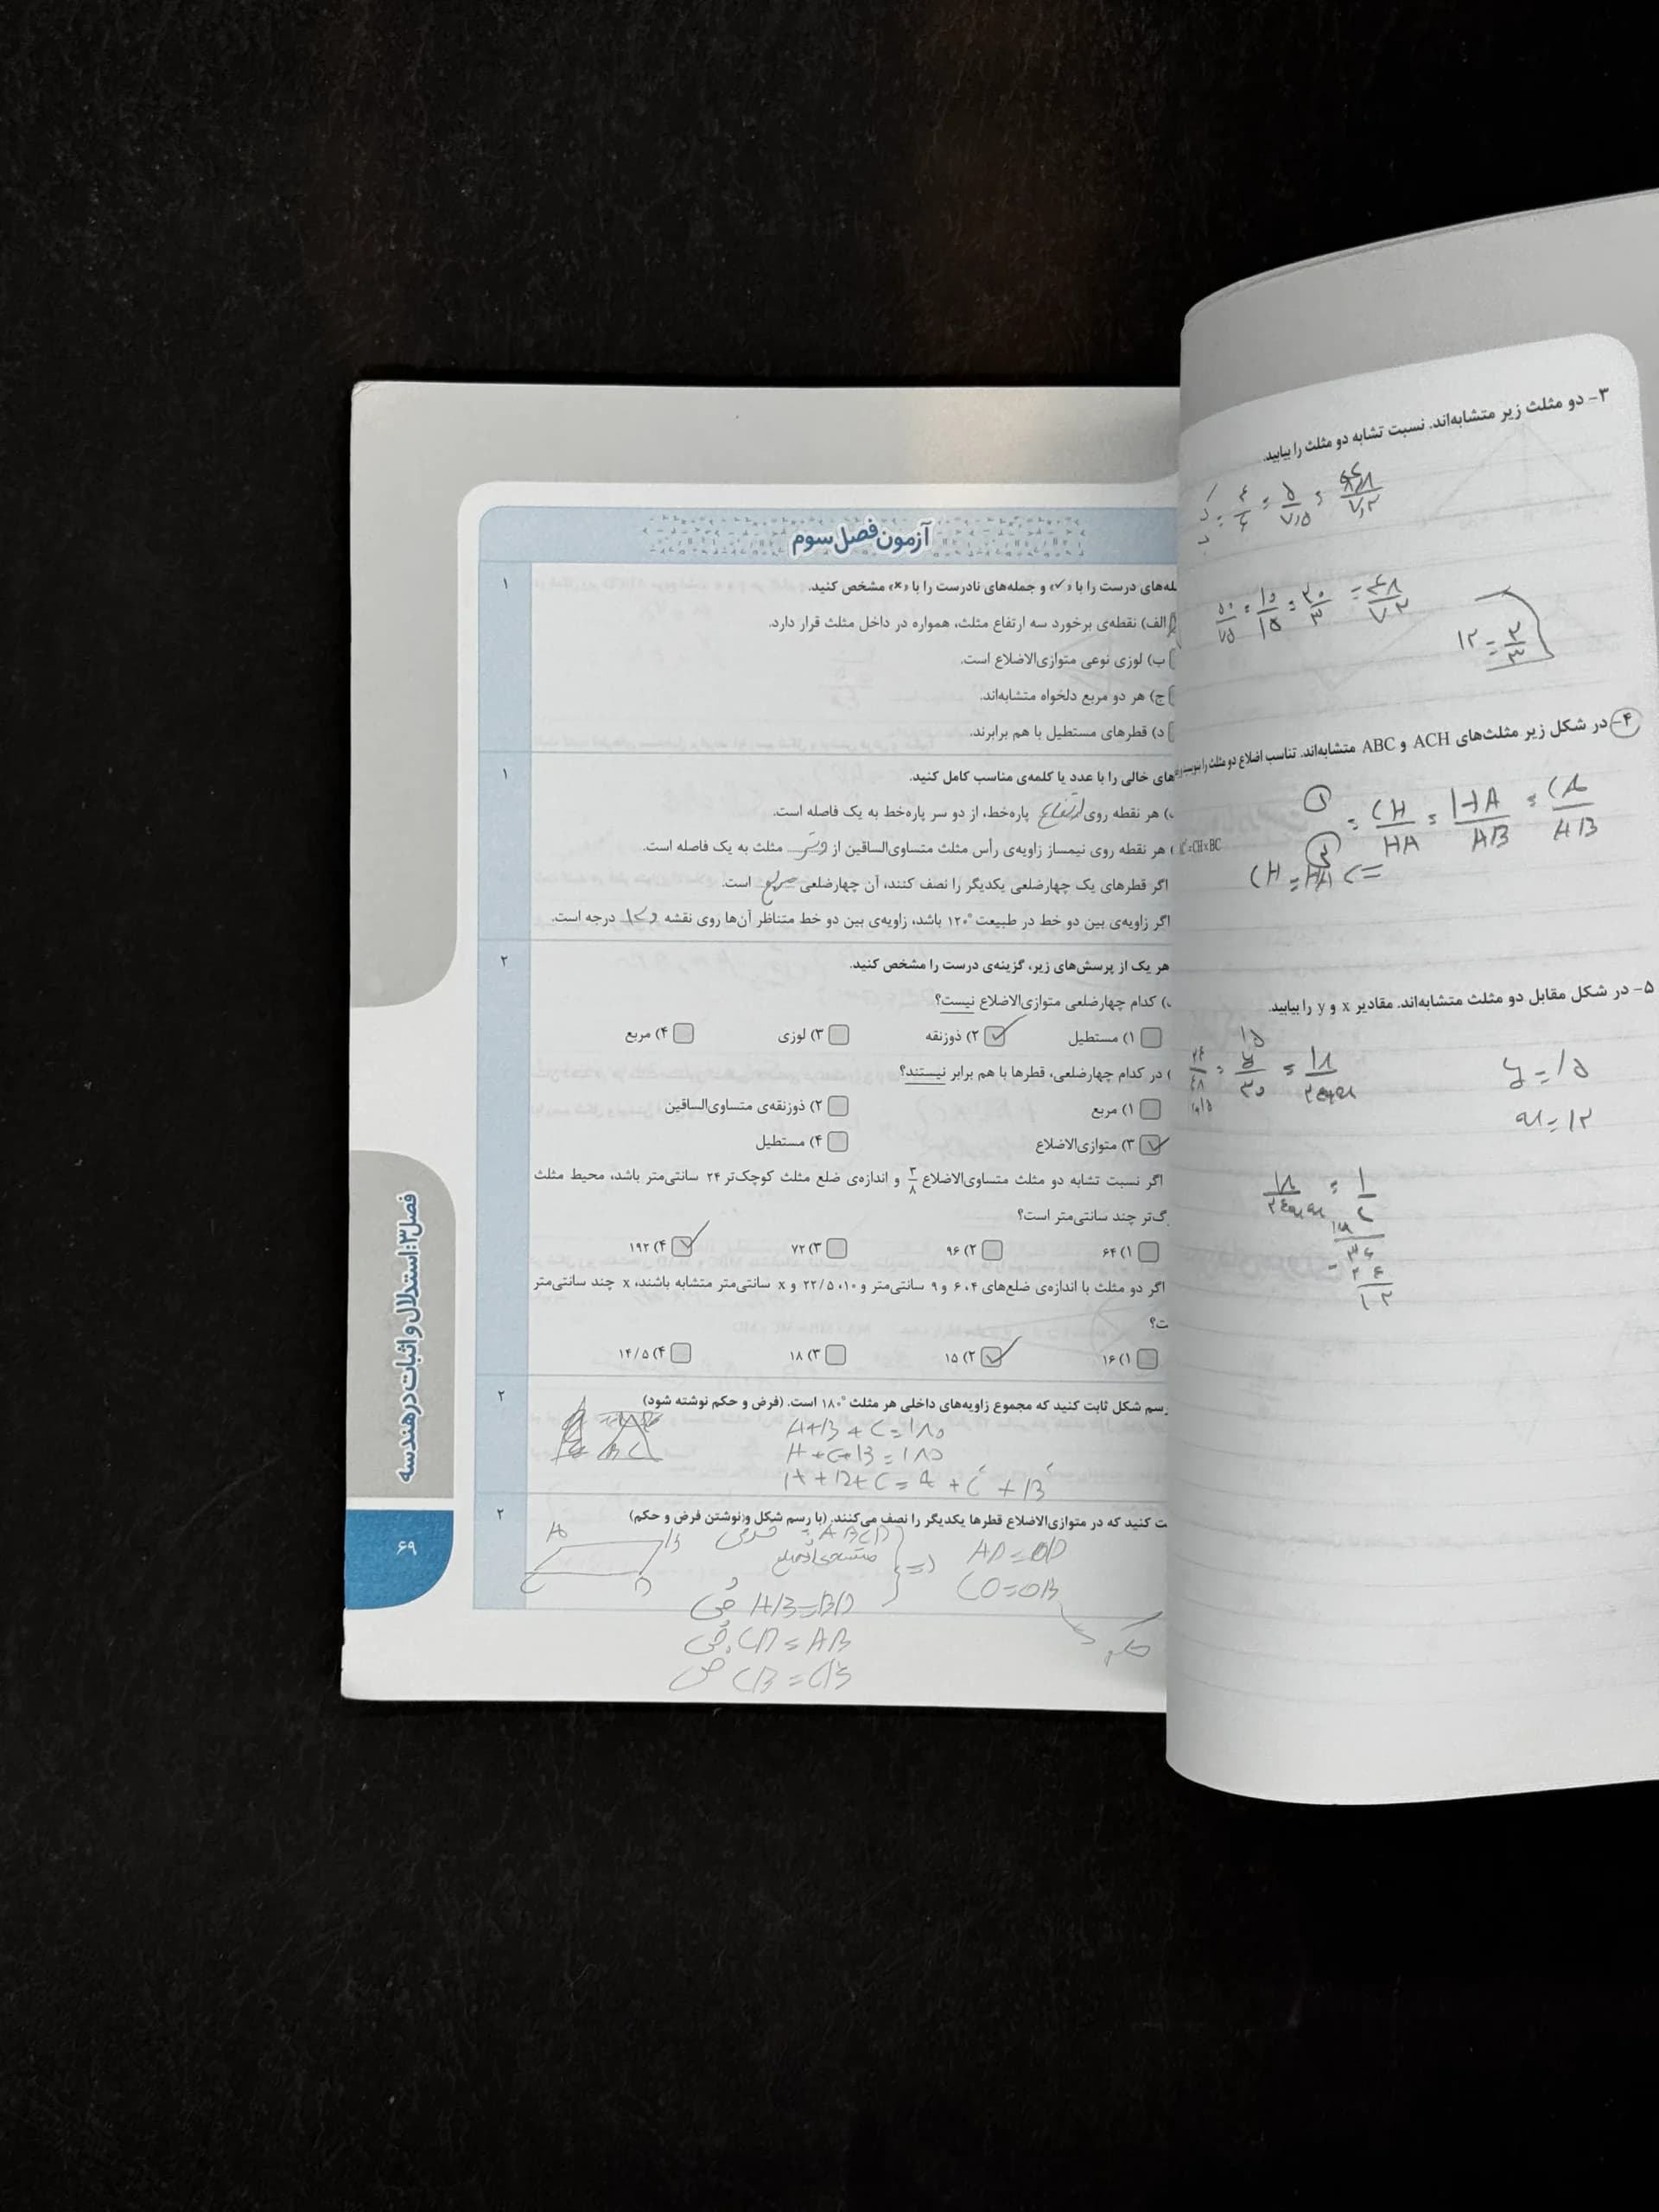 آزمون فصل سوم
له‌های درست را با «✓» و جمله‌های نادرست را با «×» مشخص کنید.
۱
الف) نقطه‌ی برخورد سه ارتفاع مثلث، همواره در داخل مثلث قرار دارد.
ب) لوزی نوعی متوازی‌الاضلاع است.
ج) هر دو مربع دلخواه متشابه‌اند.
د) قطرهای مستطیل با هم برابرند.
های خالی را با عدد یا کلمه‌ی مناسب کامل کنید.
۱
) هر نقطه روی ارتفاع پاره‌خط، از دو سر پاره‌خط به یک فاصله است.
هر نقطه روی نیمساز زاویه‌ی رأس مثلث متساوی‌الساقین از وتر مثلث به یک فاصله است.
اگر قطرهای یک چهارضلعی یکدیگر را نصف کنند، آن چهارضلعی مربع است.
اگر زاویه‌ی بین دو خط در طبیعت ۱۲۰° باشد، زاویه‌ی بین دو خط متناظر آن‌ها روی نقشه درجه است.
هر یک از پرسش‌های زیر، گزینه‌ی درست را مشخص کنید.
۲
) کدام چهارضلعی متوازی‌الاضلاع نیست؟
۱) مستطیل ۲) ذوزنقه ۳) لوزی ۴) مربع
) در کدام چهارضلعی، قطرها با هم برابر نیستند؟
۱) مربع ۲) ذوزنقه‌ی متساوی‌الساقین
۳) متوازی‌الاضلاع ۴) مستطیل
اگر نسبت تشابه دو مثلث متساوی‌الاضلاع ۳/۸ و اندازه‌ی ضلع مثلث کوچک‌تر ۲۴ سانتی‌متر باشد، محیط مثلث
گ‌تر چند سانتی‌متر است؟
۱) ۶۴ ۲) ۹۶ ۳) ۷۲ ۴) ۱۹۲
اگر دو مثلث با اندازه‌ی ضلع‌های ۶،۴ و ۹ سانتی‌متر و ۲۲/۵،۱۰ و x سانتی‌متر متشابه باشند، x چند سانتی‌متر
ت؟
۱) ۱۶ ۲) ۱۵ ۳) ۱۸ ۴) ۱۴/۵
رسم شکل ثابت کنید که مجموع زاویه‌های داخلی هر مثلث ۱۸۰° است. (فرض و حکم نوشته شود)
۲
A+B+C=۱۸۰
A+C+B=۱۸۰
A+B+C=A+C+B
ت کنید که در متوازی‌الاضلاع قطرها یکدیگر را نصف می‌کنند. (با رسم شکل و نوشتن فرض و حکم)
۲
A B C D
فرض ABCD
CO=OB
AB=BD
CD=AB
CB=CB
حکم
فصل ۳: استدلال و اثبات در هندسه
۶۹
۳- دو مثلث زیر متشابه‌اند. نسبت تشابه دو مثلث را بیابید.
۴/۶ = ۵/۷,۵ = ۴,۸/۷,۲
۵۰/۷۵ = ۱۰/۱۵ = ۴۸/۷۲
۲/۳
۴- در شکل زیر مثلث‌های ACH و ABC متشابه‌اند. تناسب اضلاع دو مثلث را بنویسید
=CH×BC
CH/HA = HA/AB = CA/AB
۵- در شکل مقابل دو مثلث متشابه‌اند. مقادیر x و y را بیابید.
y=۱۵
x=۱۲